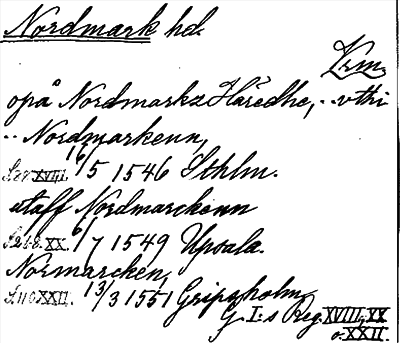 Nordmark hd.
Vrm.
opå Nordmarkz Häredhe, .. vthi
.. Nordmarkenn,
XVIII. 16/5 1546 Sthlm.
utaff Nordmarckenn
XX. 6/7 1549 Upsala.
Normarcken,
XXII. 13/3 1551 Gripsholm,
G. I:s Reg. XVIII, XX
o. XXII.